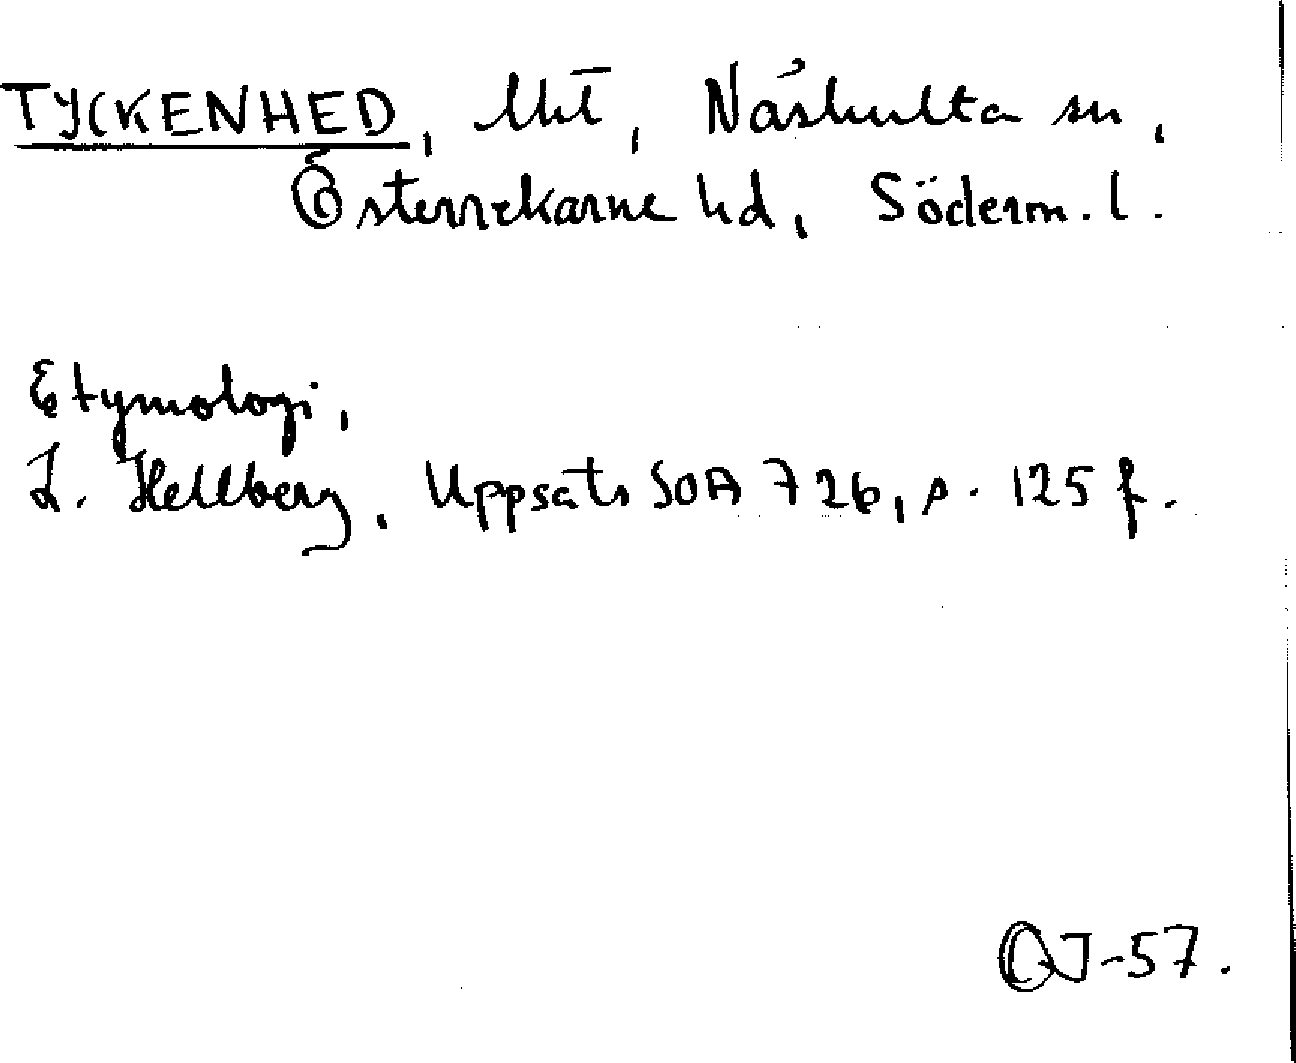 TYCKENHED, lht, Näshulta sn,
Österrekarne hd, Söderm. l.
Etymologi,
L. Hellberg, Uppsats SOA 726, s. 125 f.
OJ-57.